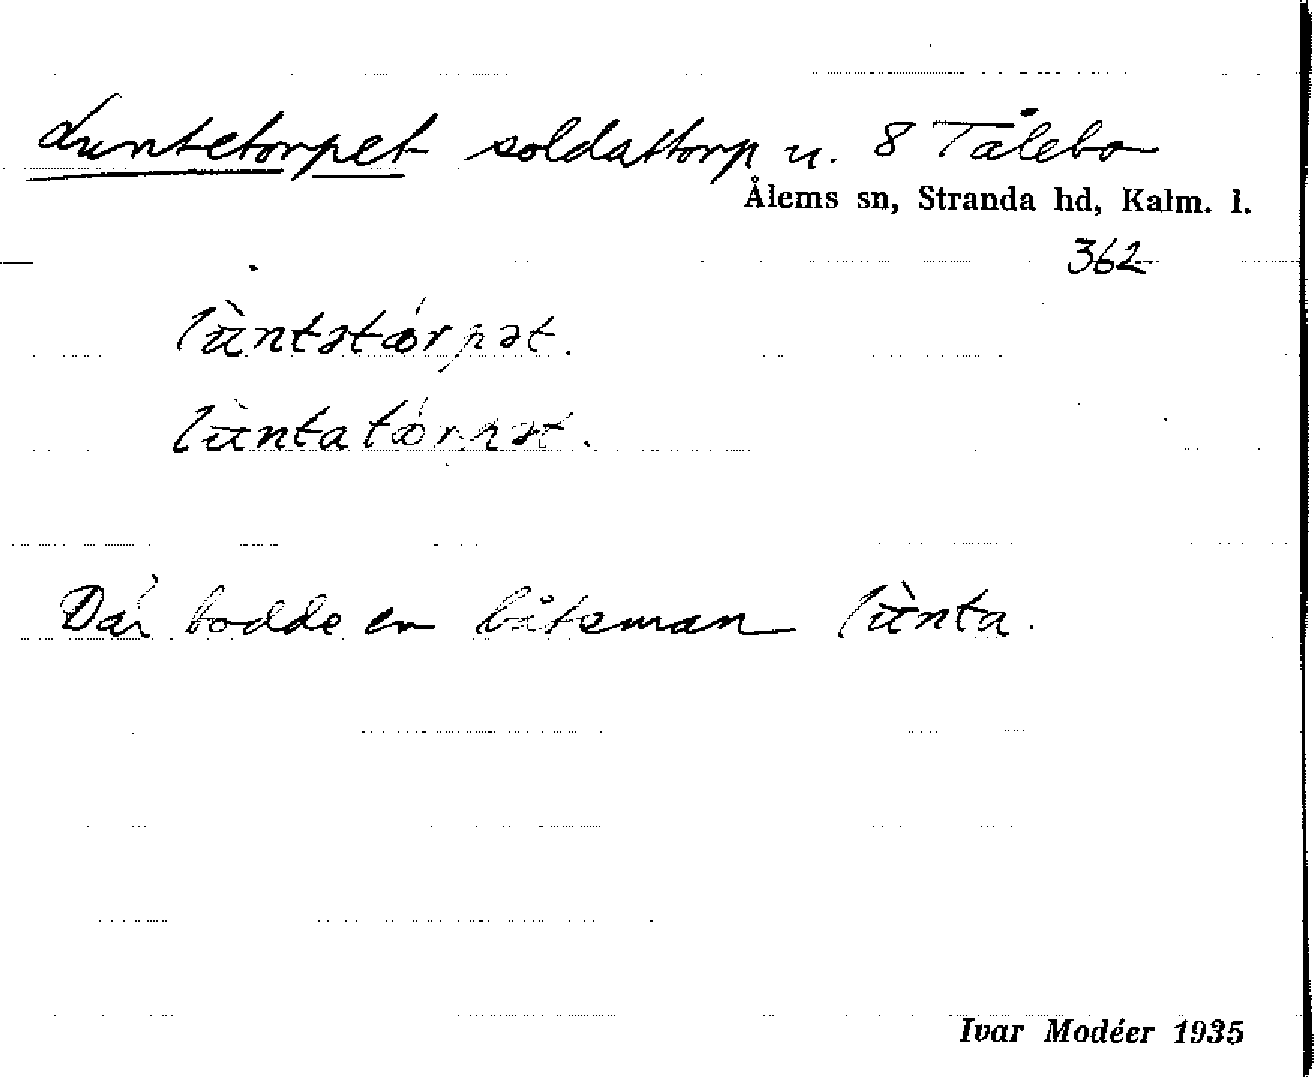 Luntetorpet soldattorp u. 8 Tålebo
Ålems sn, Stranda hd, Kalm. l.
362
lùntətórpət.
lùntatórpət.
Där bodde en båtsman lùnta.
Ivar Modéer 1935